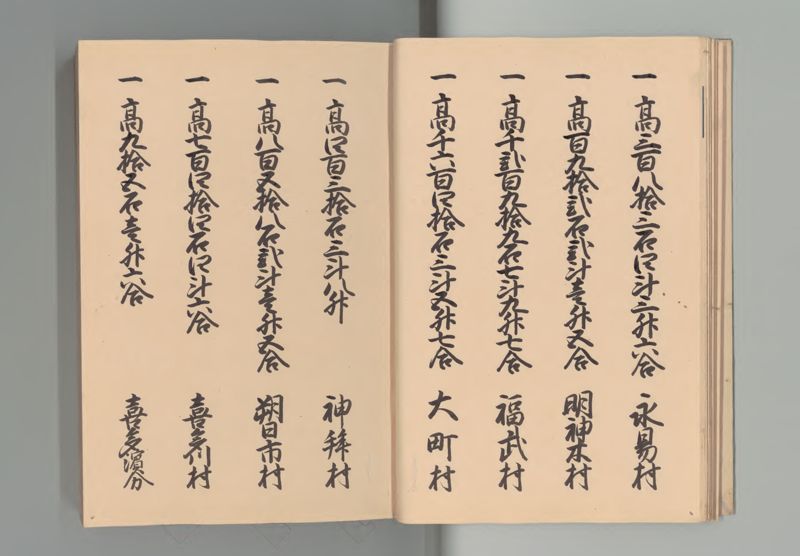 一 高三百八拾三石四斗三升六合 永易村
一 高百九拾弐石弐斗壱升又合 明神木村
一 高千弐百九拾九石七斗九升七合 福武村
一 高千六百四拾石三斗又升七合 大町村
一 高四百三拾石三斗八升 神拝村
一 高八百又拾八石弐斗壱升又合 朔日市村
一 高七百四拾四石四斗六合 喜多川村
一 高九拾又石壱升六合 喜多濱分